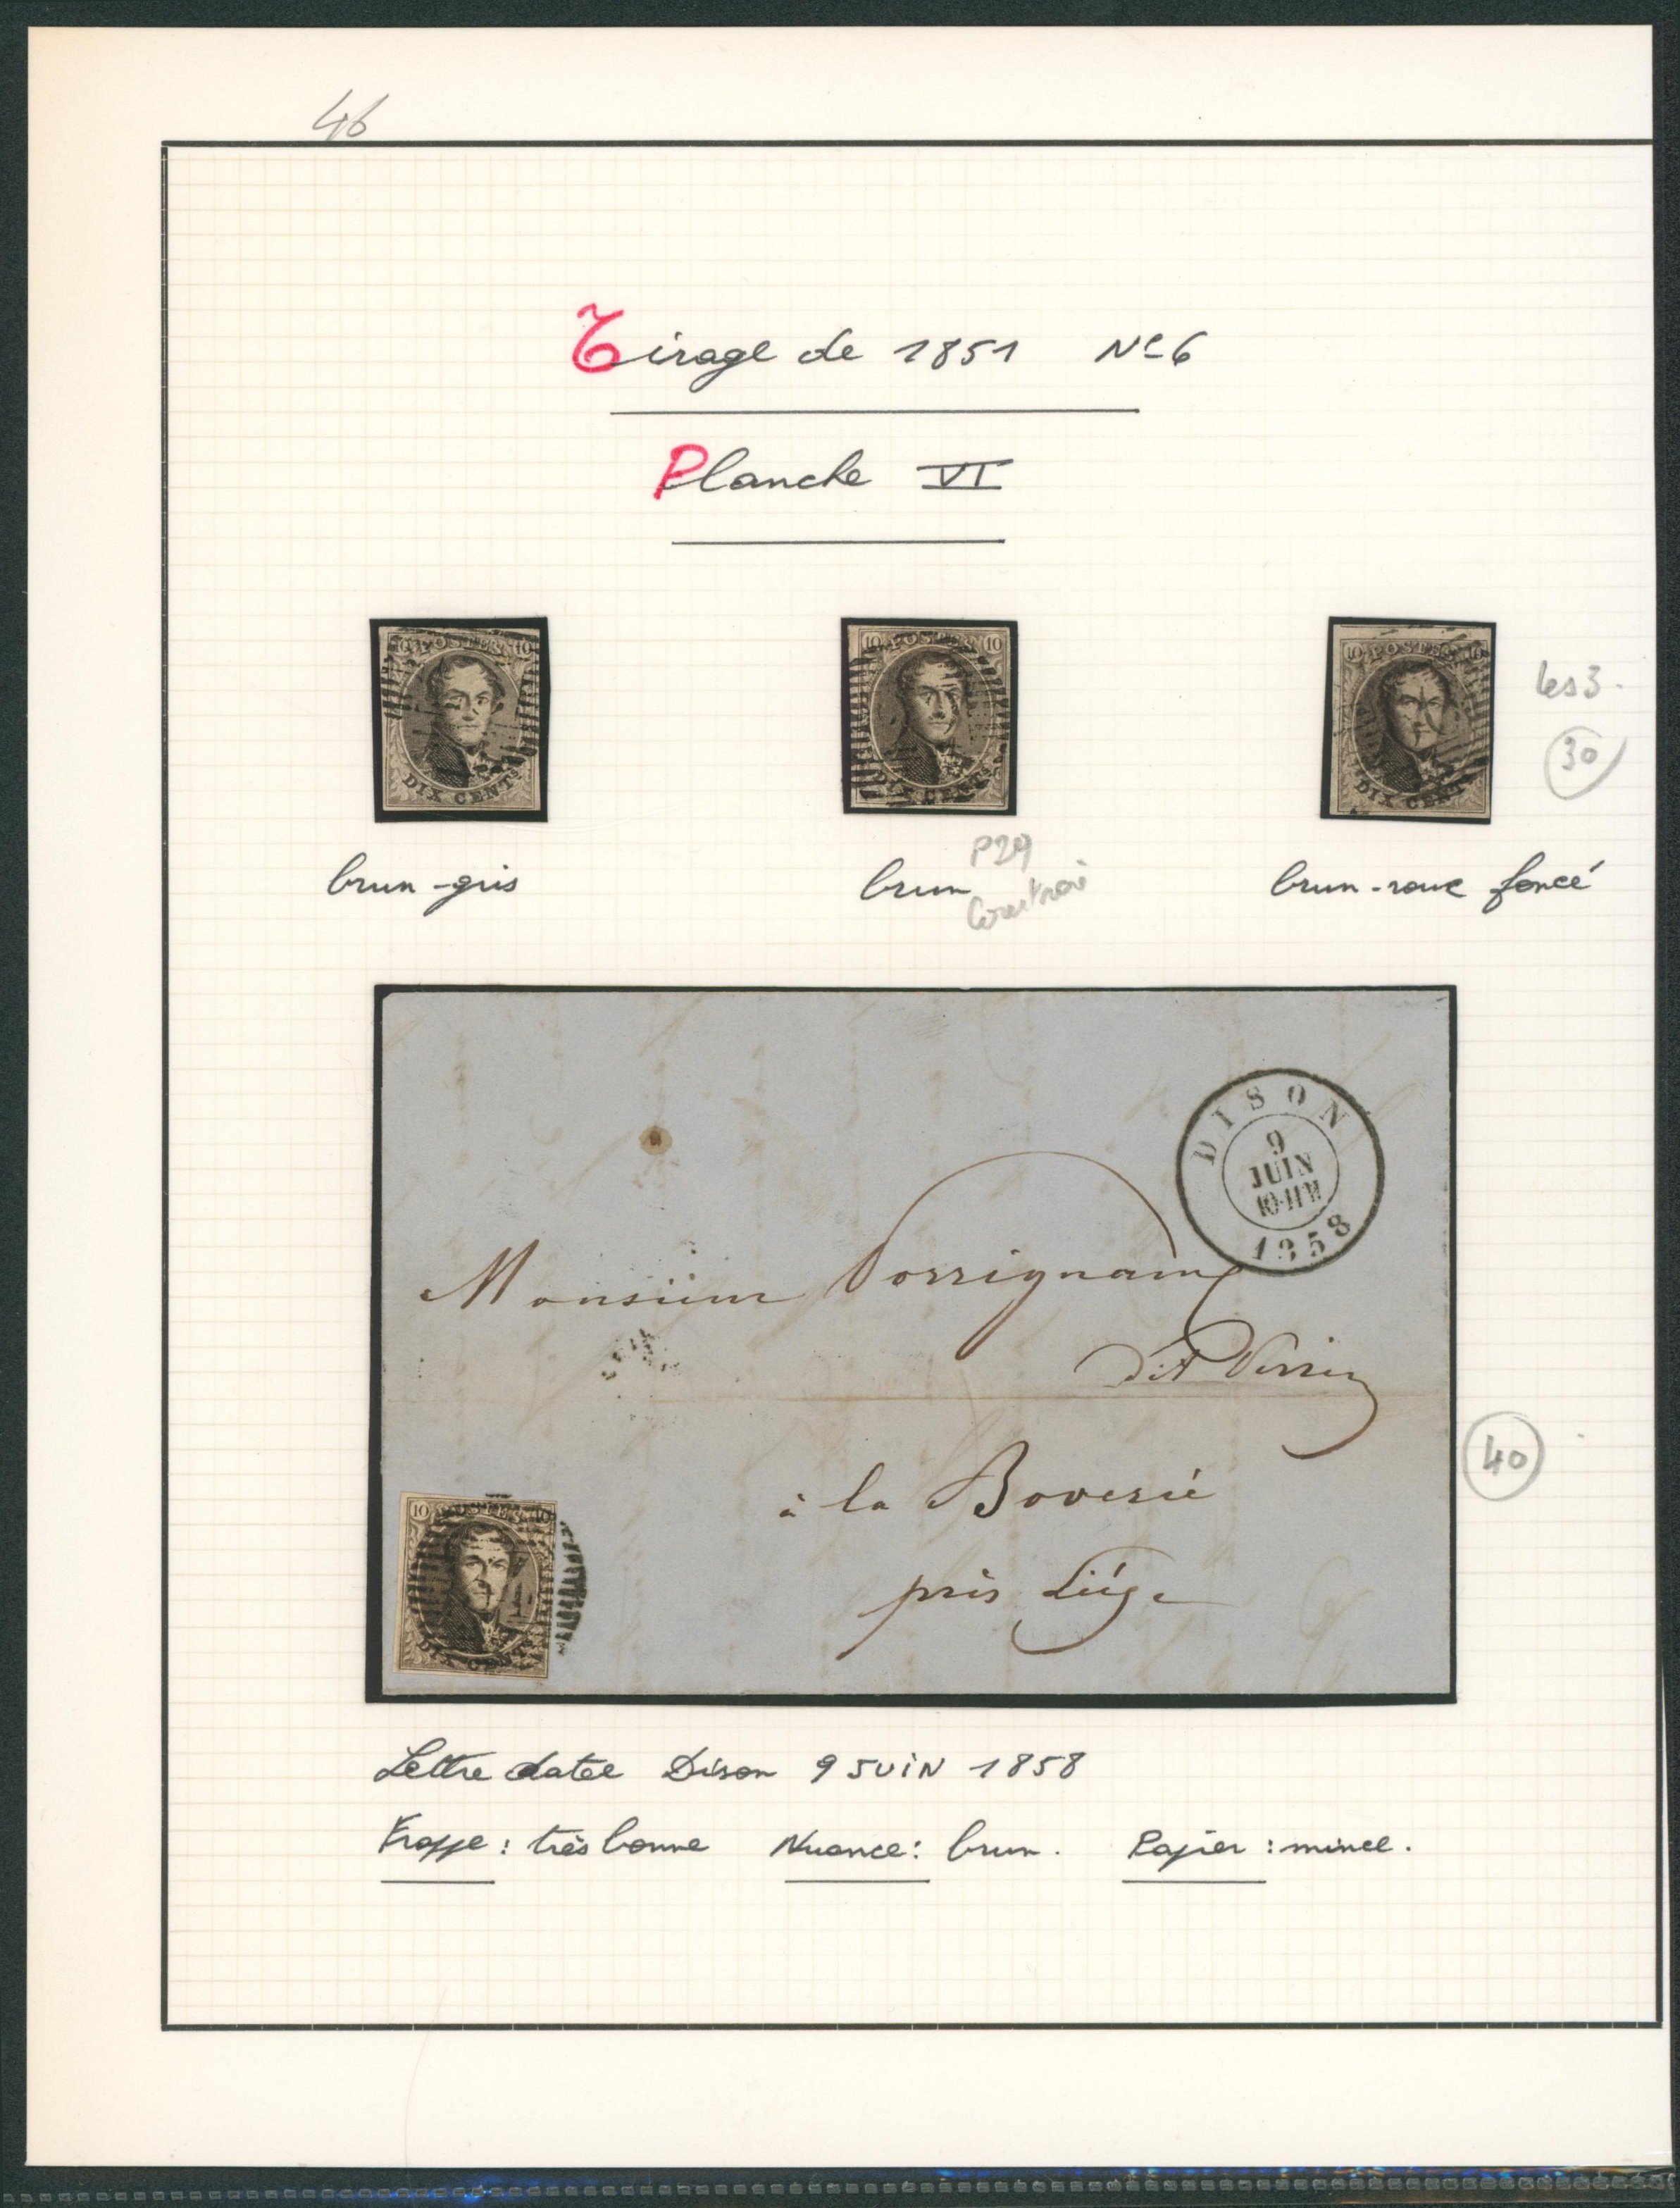 46
Tirage de 1851 No 6
Planche VI
10 POSTES 10
DIX CENTS
10 POSTES 10
DIX CENTS
10 POSTES 10
DIX CENTS
les 3.
30
brun-gris
brun
P29
Courtrai
brun-roux foncé
DISON
9
JUIN
10-11 M
1858
Monsieur
dit
à la Boverie
près Liége
10 POSTES 10
DIX CENTS
40
Lettre datée Dison 9 JUIN 1858
Frappe : très bonne Nuance : brun. Papier : mince.